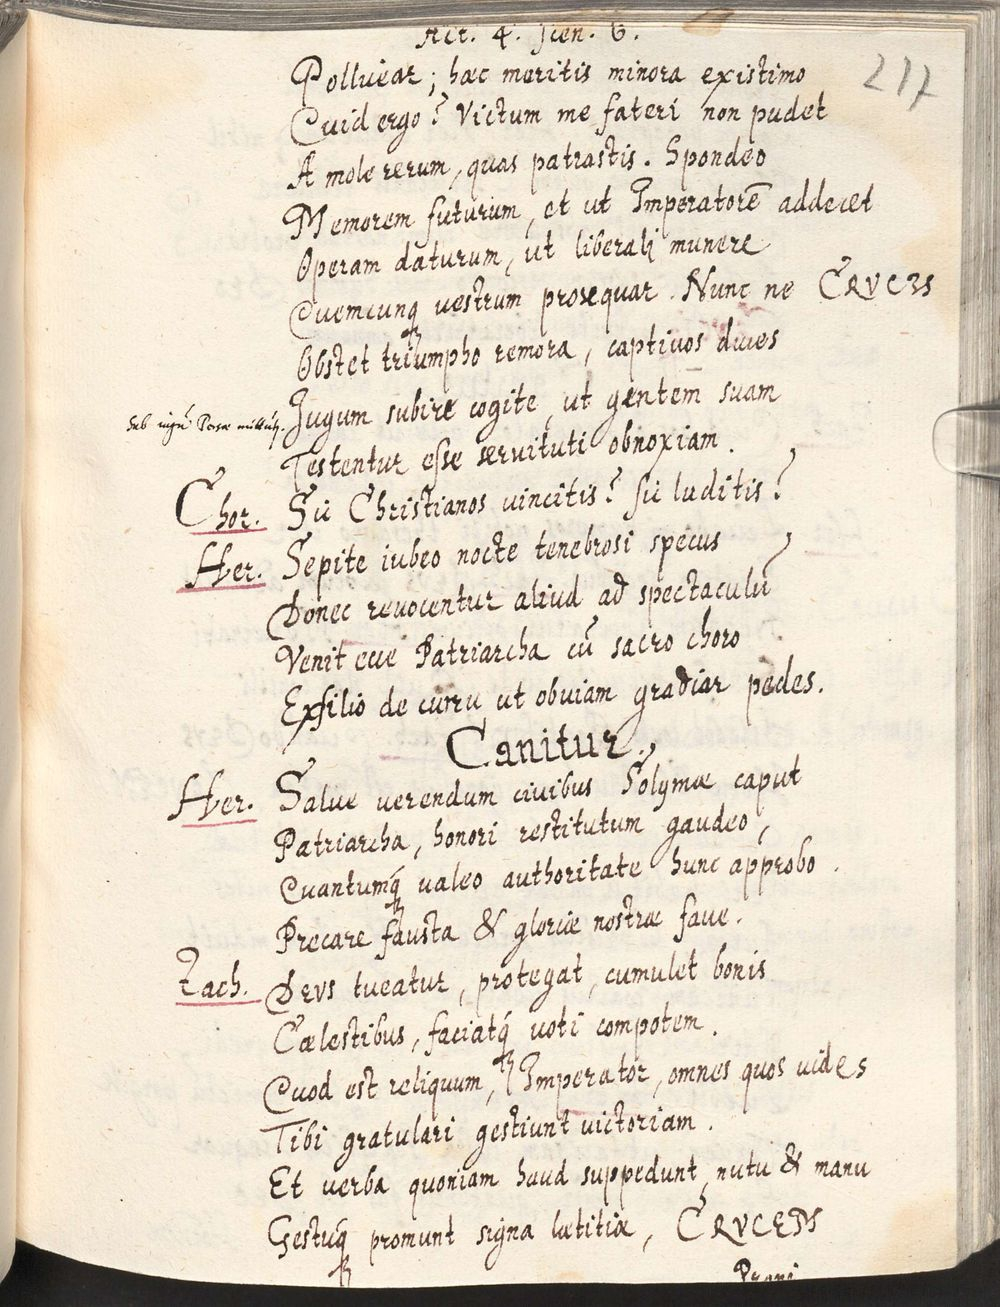 Act. 4. Scen. 6.
217
Polluear; hæc meritis minora existimo
Quid ergo? Victum me fateri non pudet
A mole rerum, quas patrastis. Spondeo
Memorem futurum, et ut Imperatorē addecet
Operam daturum, ut liberali munere
Quemcunq vestrum prosequar. Nunc ne CRVCIS
Obstet triumpho remora, captivos duces
Jugum subire cogite, ut gentem suam
sub iugū Persæ
Testentur esse servituti obnoxiam.
Chor. Sic Christianos vincitis? sic luditis?
Her. Sepite iubeo nocte tenebrosi specus
Donec revocentur aliud ad spectaculū
Venit ecce Patriarcha cū sacro choro
Exsilio de curru ut obuiam gradiar pedes.
Canitur.
Her. Salue uerendum ciuibus Solymæ caput
Patriarcha, honori restitutum gaudeo,
Quantumq ualeo authoritate hunc approbo.
Precare fausta & gloriæ nostræ faue.
Zach. DEVS tueatur, protegat, cumulet bonis
Cælestibus, faciatq uoti compotem.
Quod est reliquum, Imperator, omnes quos uides
Tibi gratulari gestiunt uictoriam.
Et uerba quoniam haud suppedunt, nutu & manu
Gestuq promunt signa lætitiæ, CRVCEM
Proni